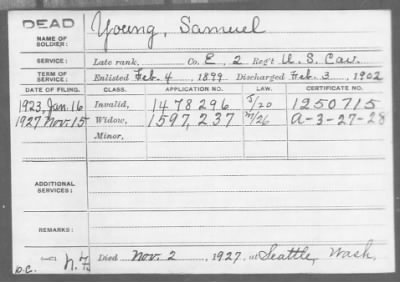 DEAD
NAME OF SOLDIER: Young, Samuel
SERVICE: Late rank, Co. E, 2 Reg't U.S. Cav.
TERM OF SERVICE: Enlisted Feb. 4, 1899 Discharged Feb. 3, 1902
DATE OF FILING. CLASS. APPLICATION NO. LAW. CERTIFICATE NO.
1923, Jan. 16 Invalid, 1478296 1250715
1927 Nov. 15 Widow, 1597,237 A-3-27-28
Minor,
ADDITIONAL SERVICES:
REMARKS:
Died Nov. 2, 1927, at Seattle, Wash.
O.C.